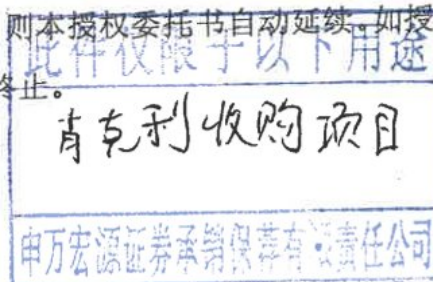 则本授权委托书自动延续。如授
此件仅限于以下用途
终止。
肖克利收购项目
申万宏源证券承销保荐有限责任公司